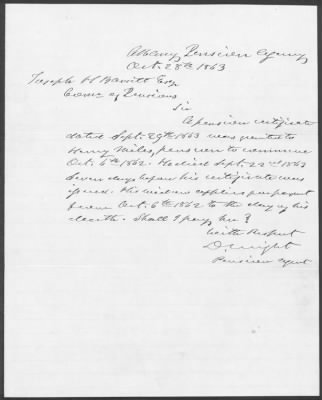 Albany Pension Agency
Oct. 28th 1863
Joseph H Barrett Esq.
Comr of Pensions
Sir
A pension certificate
dated Sept. 29th 1863 was granted to
Henry Miles, pension to commence
Oct. 6th 1862. He died Sept. 22nd 1863
Seven days before his certificate was
issued. His widow applies for payment
from Oct. 6th 1862 to the day of his
death. Shall I pay her?
With Respect
D. Wright
Pension Agent